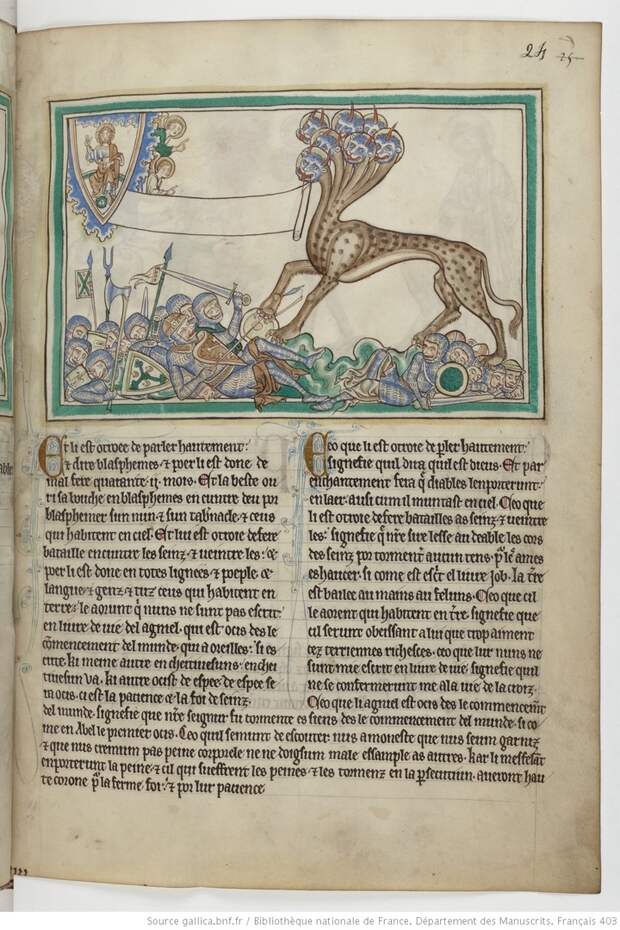 24 25
Et li est otroee de parler hautement:
⁊ dire blasphemes ⁊ poer li est done de
mal fere quarante ·ij· mois. Et la beste ou
ri sa buche en blasphemes en cuntre deu por
blasphemer sun nun ⁊ sun tabnacle ⁊ ceus
qui habitent en ciel. Et lui est otroie de fere
bataille encuntre les seinz ⁊ veintre les: ⁊
poer li est done en totes lignees ⁊ poeple ⁊
langue ⁊ genz ⁊ tuz ceus qui habitent en
terre le aorunt qi nuns ne sunt pas escrit
en livre de vie del agniel. qui est ocis des le
cōmencement del munde. qui a oreilles: si es
cute. ki meine autre en cheitivesuns: en chei
tivesun va. ki autre ocist de espee: de espee se
ra ocis. ci est la pacience ⁊ la foi de seinz.
Ceo que li est otroie de pler hautement:
signefie quil dira quil est dieus. Et par
enchantement fera qi diables len porterunt
en laer. ausi cum il muntast en ciel. Ceo que
li est otroie de fere batailles as seinz ⁊ veintre
les: signefie qi nre sire lesse au deable les cors
des seinz por tormenter aucun tens. p le ames
eshaucer. si come est escrit el livre job. la tre
est bailee au mains au feluns. Ceo que cil
le aorent qui habitent en tre. signefie que
cil serunt obeissant a lui que trop aiment
cez terriennes richeses. ceo que lur nuns ne
sunt mie escrit en livre de vie: signefie quil
ne se confermerunt mie a la vie de la croiz.
Ceo que li agniel est ocis des le commencemt
del munde. signefie que nre seignur fu tormente es siens des le commencement del munde. si co
me en Abel le premier ocis. Ceo quil semunt de escouter: nus amoneste que nus seium garniz
⁊ que nus cremum pas peine corporele ne ne doignum male essample as autres. kar li mesfesant
enporterunt la peine ⁊ cil qui sueffrent les peines ⁊ les tormenz en la persecutiun. averont hau
te corone p la ferme foi: ⁊ por lur pacience
Source gallica.bnf.fr / Bibliothèque nationale de France. Département des Manuscrits. Français 403